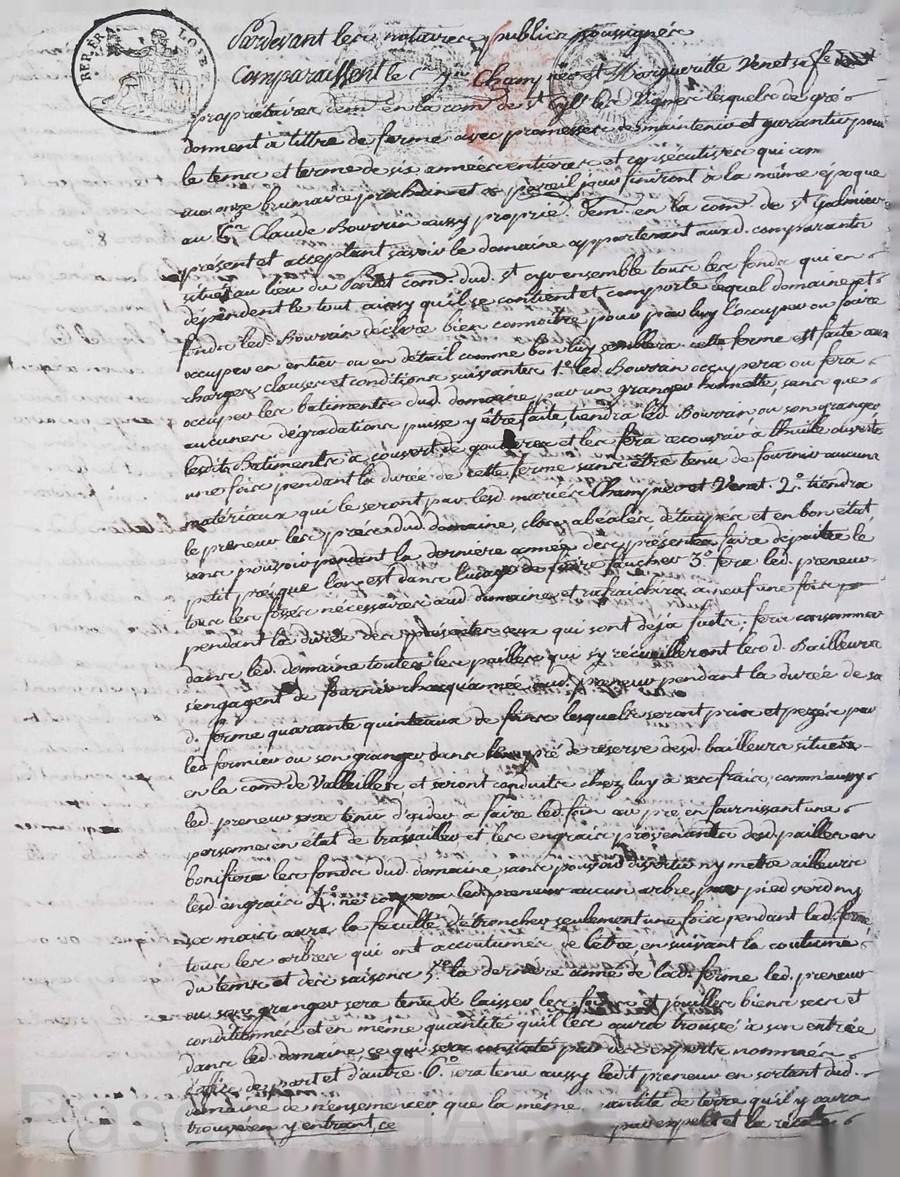 REP. FRA. LOIRE
Pardevant les notaires publics soussignés
Comparaissent le Cen Jn Champier et Margueritte Venet sa fe
propriétaires demt en la com. de st Cyr les Vignes lesquels de gré
donnent à tittre de ferme avec promesses de maintenir et garantir pour
le tems et terme de six années entieres et consécutives qui com
au onze brumaire prochain et pareil jour finiront à la même époque
au Cen Claude Bourrin aussy proprié. dem. en la com. de st Galmier
présent et acceptant savoir le domaine appartenant auxd. comparants
situé au lieu du com. dud. st Cyr ensemble tous les fonds qui en
dépendent le tout aussy qu'il se contient et comporte lequel domaine et
fonds led. Bourrin déclare bien connoitre pour par luy l'occuper ou faire
occuper en entier ou en détail comme bon luy semblera cette ferme est faite aux
charges clauses et conditions suivantes 1° led. Bourrin occupera ou fera
occuper les batiments dud. domaine par un granger honnette, sans que
aucunes dégradations puisse y être faite, tiendra led. Bourrin ou son granger
lesdits Batiments à couvert de goutieres et les fera recouvrir à thuile ouverte
une fois pendant la durée de cette ferme sans être tenu de fournir aucuns
matériaux qui le seront par lesd. mariés Champier et Venet. 2° tiendra
le preneur les prés dud. domaine, clos, abéalés, étaupés et en bon état
sans pouvoir pendant la derniere année des présentes faire dépaitre le
petit pré que l'on est dans l'usage de faire faucher 3° fera led. preneur
tous les fossés nécessaires aud. domaine et rafraichira à neuf une fois
pendant la durée des présentes ceux qui sont deja faits. fera consommer
dans led. domaine toutes les pailles qui s'y recueilleront les d. Bailleurs
s'engagent de fournir chaqu'année aud. preneur pendant la durée de sa
d. ferme quarante quinteaux de foins lesquels seront pris et pezés par
led fermier ou son granger dans leur pré de réserve desd. bailleurs situés
en la com. de Valeilles et seront conduits chez luy à ses frais, comm'aussy
led. preneur sera tenu d'aider a faire led. foin au pré, en fournissant une
personne en état de travailler et les engrais provenants desd pailles en
bonifiera les fonds dud. domaine sans pouvoir divertir ny mettre ailleurs
lesd. engrais 4° ne coupera led. preneur aucun arbre par pied verd ny
sec mais aura la faculté d'étroncher seulement une fois pendant lad. ferme
tous les arbres qui ont accoutumés de l'être, en suivant la coutume
du tems et des saisons 5° la derniere année de lad. ferme led. preneur
ou son granger sera tenu de laisser les foins et pailles biens secs et
conditionnés et en même quantité qu'il les aura trouvé à son entrée
dans led. domaine, ce qui sera constaté par des experts nommés
d'office de part et d'autre 6° sera tenu aussy ledit preneur en sortant dud.
domaine de n'ensemencer que la même antité de terre qu'il y aura
trouvée en y entrant, ce par experts et la récolte